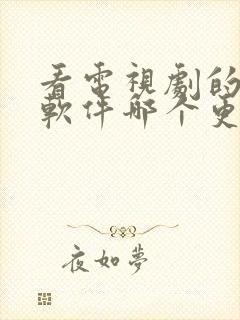 看電視劇的
軟件哪个更
夜如夢